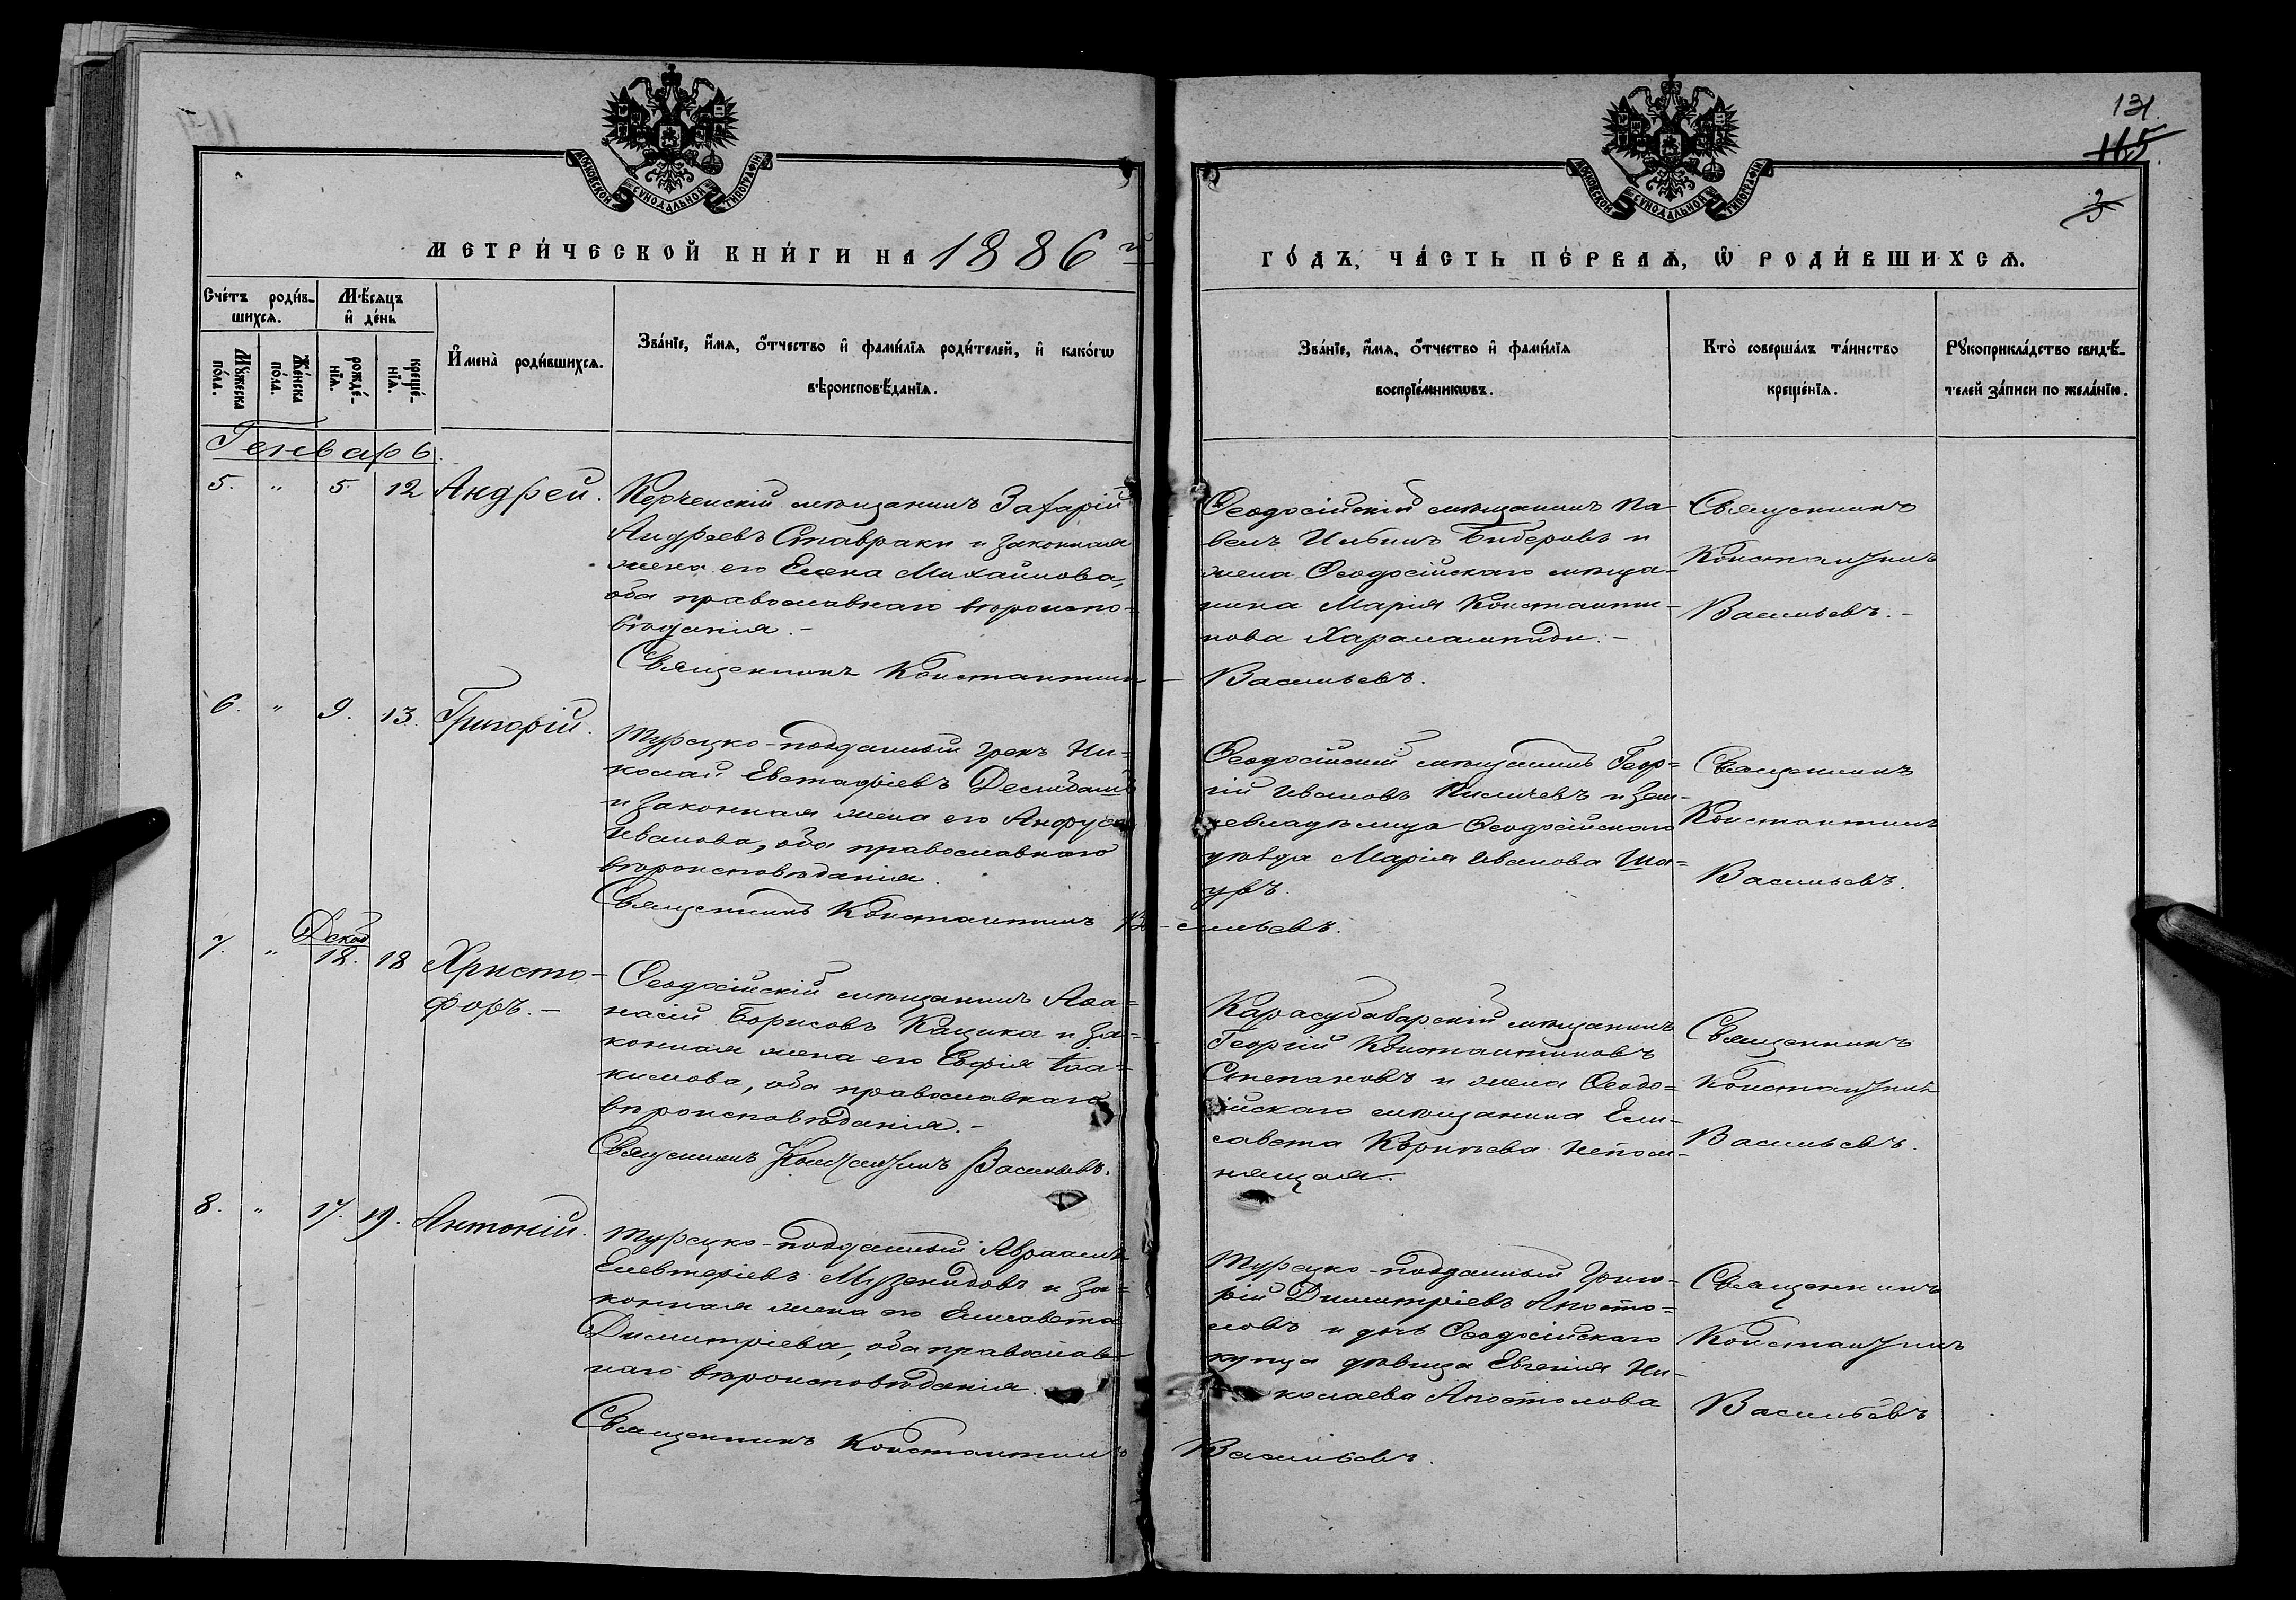 131
165
3
МОСКОВСКОЙ СѴНОДАЛЬНОЙ ТИПОГРАФІИ
МОСКОВСКОЙ СѴНОДАЛЬНОЙ ТИПОГРАФІИ
МЕТРИ́ЧЕСКОЙ КНИ́ГИ НА 1886 й
ГО́ДЪ, ЧА́СТЬ ПЕ́РВАѦ, Ѡ РОДИ́ВШИХСѦ.
Сче́тъ роди́в-
шихсѧ.
Мѣ́сѧцъ
и҆ де́нь
Мꙋ́жеска
по́ла.
Же́нска
по́ла.
рожде́-
нїѧ.
креще́-
нїѧ.
И҆мена̀ роди́вшихсѧ.
Зва́нїе, и҆́мѧ, ѻ҆́тчество и҆ фами́лїѧ роди́телей, и҆ како́гѡ
вѣроисповѣ́данїѧ.
Зва́нїе, и҆́мѧ, ѻ҆́тчество и҆ фами́лїѧ
воспрїе́мникѡвъ.
Кто̀ соверша́лъ та́инство
креще́нїѧ.
Рꙋкоприкла́дство свидѣ́-
телей за́писи по жела́нїю.
Генварь
5. " 5 12 Андрей.
Керченскій мѣщанинъ Захарій
Андреевъ Ставраки и законная
жена его Елена Михайлова,
оба православнаго вѣроиспо-
вѣданія.-
Священникъ Константинъ
Ѳеодосійскій мѣщанинъ Па-
велъ Ильинъ Биберовъ и
жена Ѳеодосійскаго мѣща-
нина Марія Константи-
нова Харалампиди.-
Васильевъ.
Священникъ
Константинъ
Васильевъ.-
6. " 9. 13. Григорій.
Турецко-подданный грекъ Ни-
колай Евстафіевъ
и законная жена его
Иванова, оба православнаго
вѣроисповѣданія.
Священникъ Константинъ Ва-
Ѳеодосійскій мѣщанинъ Геор-
гій Ивановъ и зем-
левладѣлица Ѳеодосійскаго
уѣзда Марія Иванова Ша-
уръ.
сильевъ.
Священникъ
Константинъ
Васильевъ.
Декаб
7. " 18. 18 Христо-
форъ.-
Ѳеодосійскій мѣщанинъ Аѳа-
насій Борисовъ Кацика и за-
конная жена его Софія Іоа-
кимова, оба православнаго
вѣроисповѣданія.-
Священникъ Константинъ Васильевъ.
Карасубазарскій мѣщанинъ
Георгій Константиновъ
Степановъ и жена Ѳеодо-
сійскаго мѣщанина Ели-
савета Непом-
нящая.
Священникъ
Константинъ
Васильевъ.
8. " 17. 19. Антоній.
Турецко-подданный Авраамъ
Елевтеріевъ Музенидовъ и за-
конная жена его Елисавета
Димитріева, оба православ-
наго вѣроисповѣданія.
Священникъ Константинъ
Турецко-подданный Григо-
рій Димитріевъ Апосто-
ловъ и дочь Ѳеодосійскаго
купца дѣвица Евгенія Ни-
колаева Апостолова
Васильевъ.
Священникъ
Константинъ
Васильевъ